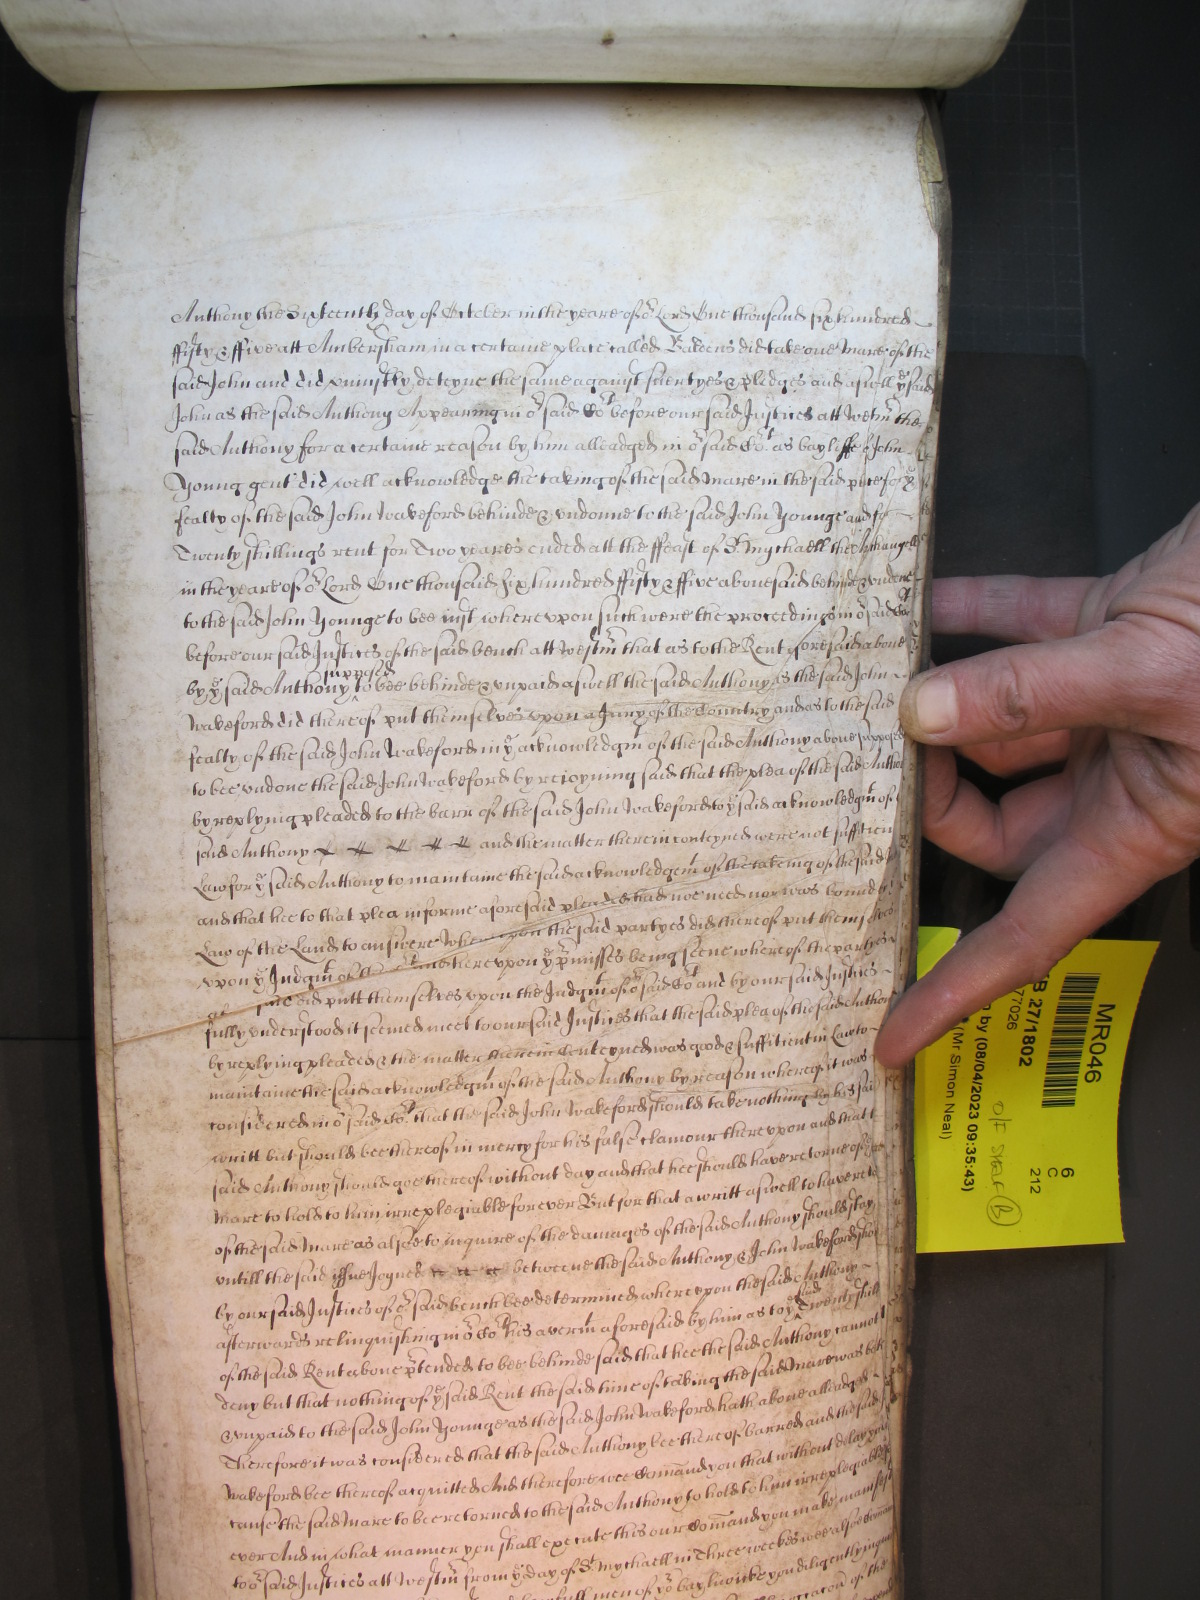 Anthony the Sixteenth day of October in the yeare of oʳ Lord One thousand six hundred
ffifty & ffive att Ambersham in a certaine place called did take one Mare of the
said John and did uniustly deteyne the same against suertyes & pledges and aswell yᵉ said
John as the said Anthony Appearing in oʳ said Coʳᵗ before our said Justices att Westmʳ the
said Anthony for a certaine reason by him alleadged in oʳ said Coʳᵗ as bayliffe of John
Young gent did well acknowledge the taking of the said Mare in the said place for yᵉ
fealty of the said John Wakeford behinde & undonne to the said John Younge and for
Twenty shillings rent for Two yeares ended att the ffeast of Sᵗ Mychaell the Archangell
in the yeare of oʳ Lord One thousand Six hundred ffifty & ffive abovesaid behinde &
to the said John Younge to bee iust whereupon such were the proceedings in oʳ said Coʳᵗ
before our said Justices of the said bench att Westmʳ that as to the Rent aforesaid above
by yᵉ said Anthony supposed to bee behinde & unpaid aswell the said Anthony as the said John
Wakeford did thereof put themselves upon a Jury of the Country and as to the said
fealty of the said John Wakeford in yᵉ acknowledgmᵗ of the said Anthony above supposed
to bee undone the said John Wakeford by reioyning said that the plea of the said Antho
by replying pleaded to the barr of the said John Wakeford to yᵉ said acknowledgmᵗ of
said Anthony and the matter therein conteyned were not sufficien
Law for yᵉ said Anthony to maintaine the said acknowledgmᵗ of the taking of the said
and that hee to that plea in forme aforesaid pleaded had not need nor was bound by
Law of the Land to answere Whereupon the said partyes did thereof put themselves
upon yᵉ Judgmᵗ of whereupon yᵉ pʳmisses being seene whereof the partyes
did putt themselves upon the Judgmᵗ of oʳ said Coʳᵗ and by our said Justices
fully understood it seemed meet to our said Justices that the said plea of the said Anthony
by replying pleaded & the matter therein Conteyned was good & sufficient in Law to
maintaine the said acknowledgmᵗ of the said Anthony by reason whereof it was
considered in oʳ said Coʳᵗ that the said John Wakeford should take nothing by his said
writt but should bee thereof in mercy for his false clamour thereupon and that
said Anthony should goe thereof without day and that hee should have retorne of
Mare to hold to him irreplegiable for ever But for that a writt aswell to have
of the said Mare as alsoe to inquire of the damages of the said Anthony should stay
untill the said issue Joyned betweene the said Anthony & John Wakeford
by our said Justices of oʳ said bench bee determined whereupon the said Anthony
afterwards relinquishing in oʳ Coʳᵗ his avermᵗ aforesaid by him as to yᵉ said Twenty shill
of the said Rent above pʳtended to bee behinde said that hee the said Anthony cannot
deny but that nothing of yᵉ said Rent the said time of taking the said Mare was beh
& unpaid to the said John Younge as the said John Wakeford hath above alleadged
Therefore it was considered that the said Anthony bee thereof barred and the said
Wakeford bee thereof acquitted And therefore wee Comand you that without delay you
cause the said Mare to bee retorned to the said Anthony to hold to him irreplegiable
ever And in what manner you shall execute this our Comand you make manifest
to oʳ said Justices att Westmʳ from yᵉ day of Sᵗ Mychaell in Three weekes wee alsoe
lawfull men of yoʳ bayliwicke you diligently
of the
MR046
B 27/1802
77026
by (08/04/2023 09:35:43)
(Mr Simon Neal)
O/F SHELF B
6
C
212